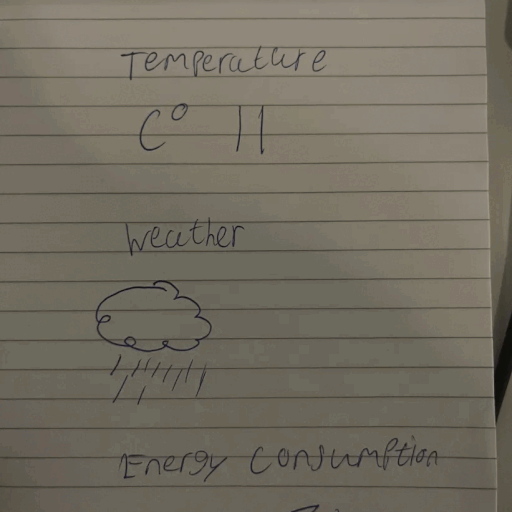 Temperature
C° 11
Weather
Energy Consumption